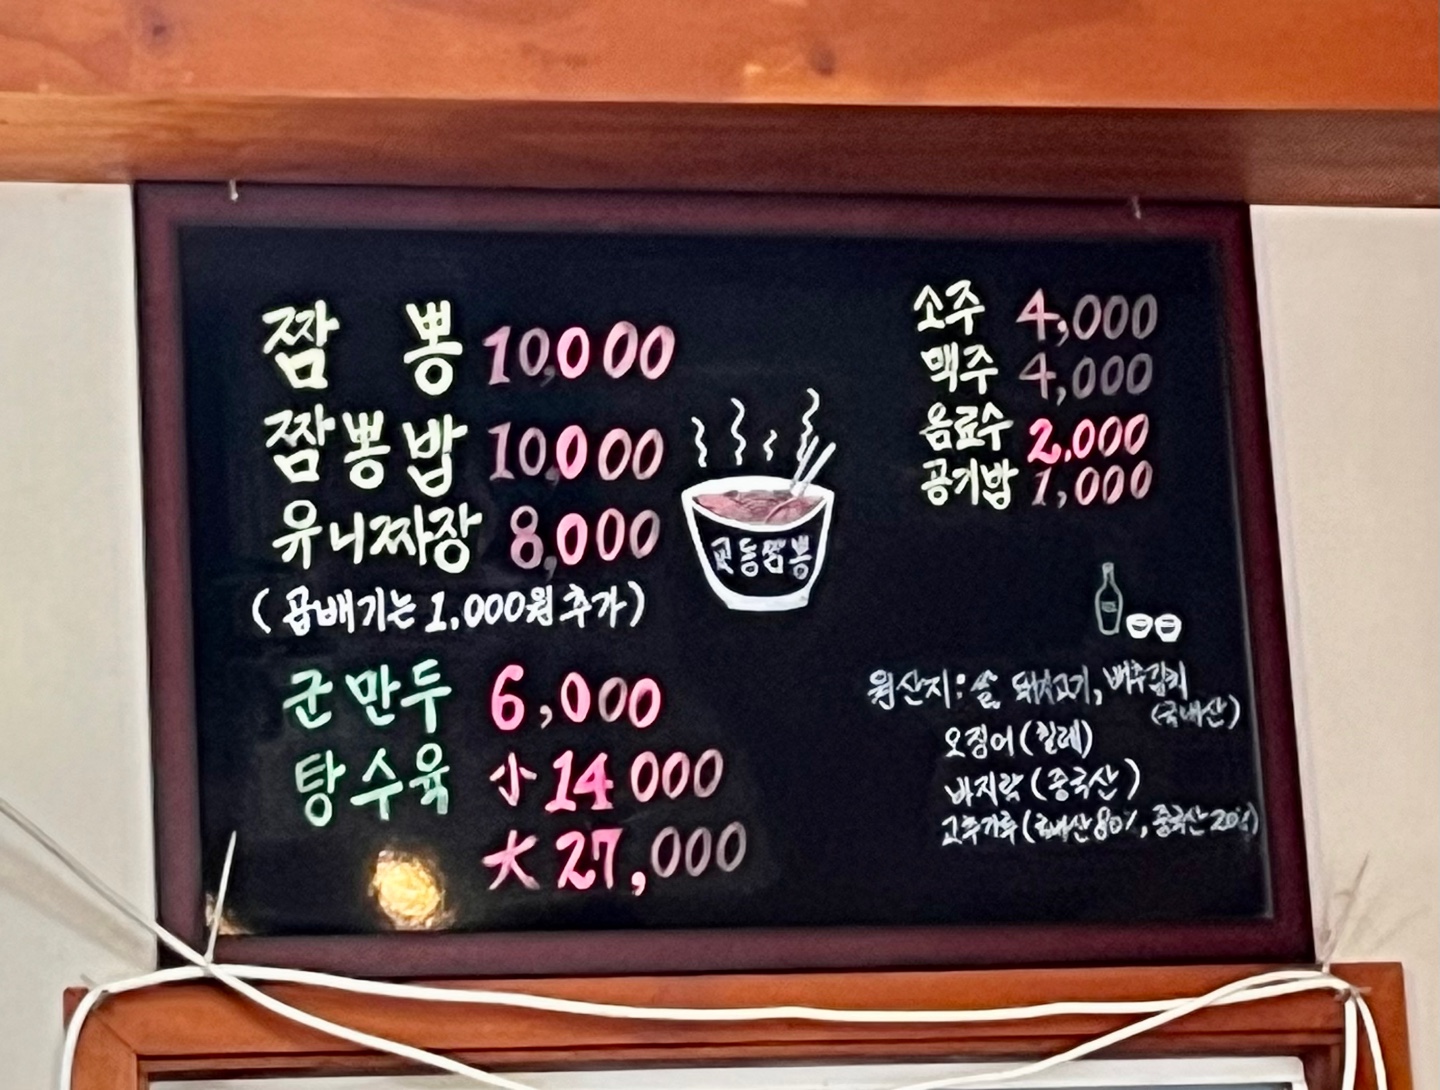 짬 뽕 10,000
짬뽕밥 10,000
유니짜장 8,000
(곱배기는 1,000원 추가)
군만두 6,000
탕수육 小 14 000
大 27,000
교동짬뽕
소주 4,000
맥주 4,000
음료수 2,000
공기밥 1,000
원산지: 쌀, 돼지고기, 배추김치
(국내산)
오징어(칠레)
바지락(중국산)
고추가루(국내산80%, 중국산20%)